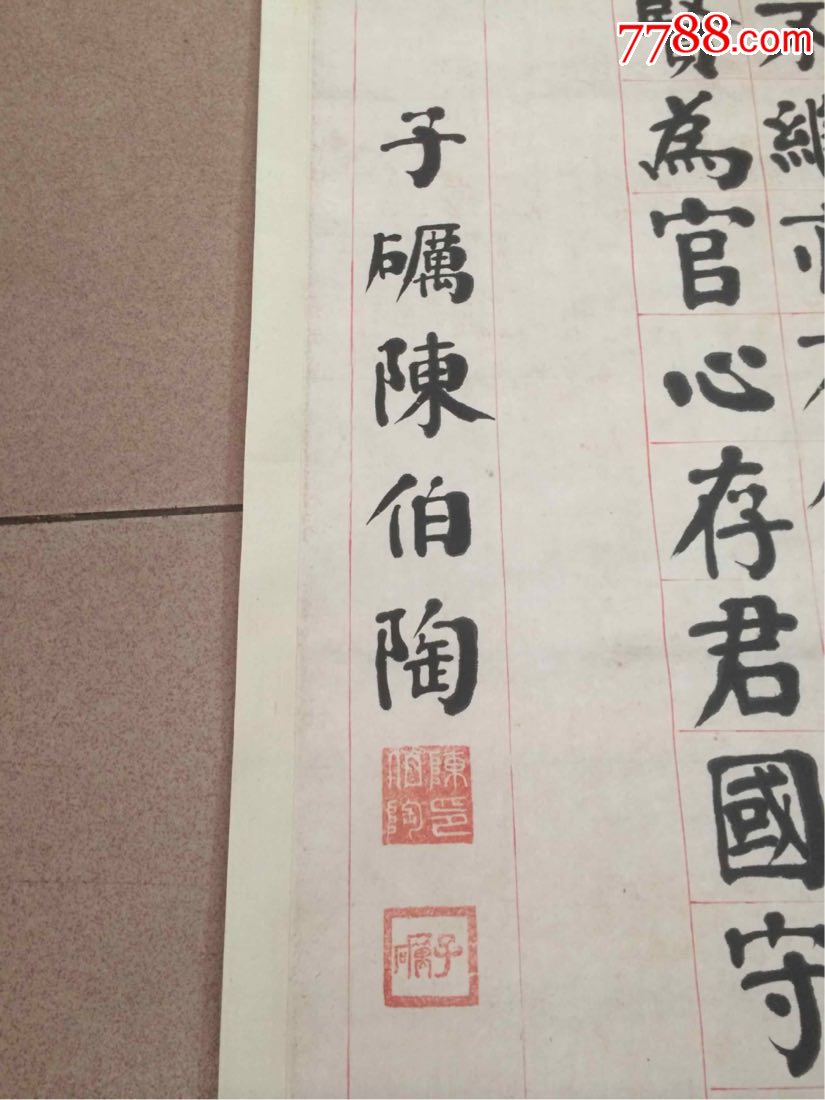 7788.com
賢為官心存君國守
子礪陳伯陶
陳印
伯陶
子礪